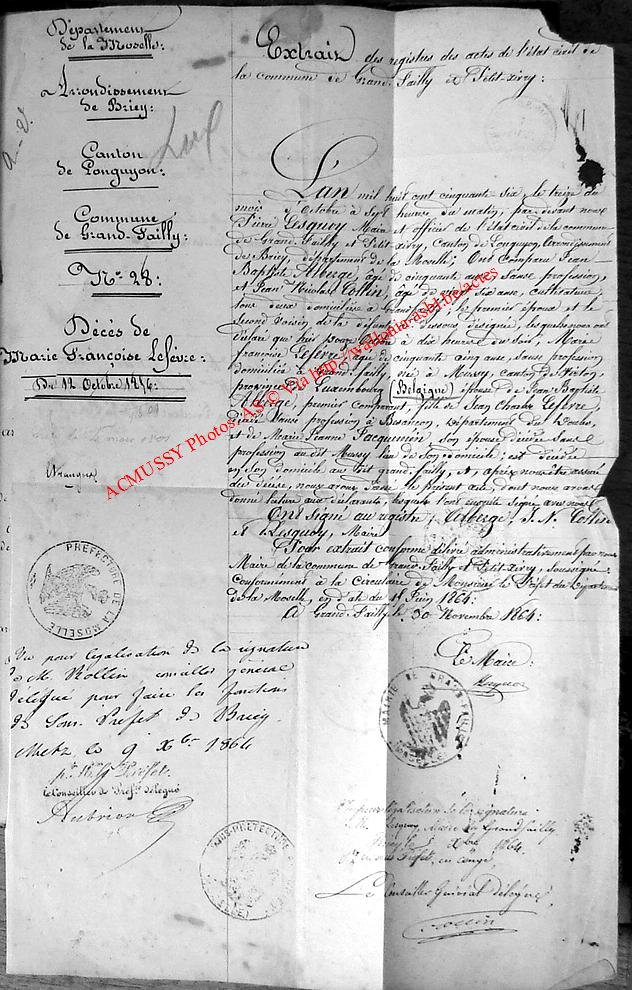 Département
de la Moselle:
Arrondissement
de Briey:
Canton
de Longuyon:
Commune
de Grand-Failly:
N° 28:
Décès de
Marie Françoise Lefèvre:
Du 12 Octobre 1856:
Extrait des registres des actes de l'état civil de
la commune de Grand-Failly et Petit-Xivry:
L'an mil huit cent cinquante six, le treize du
mois d'Octobre à sept heures du matin, par devant nous
Pierre Lesquoy Maire et officier de l'état civil de la commune
de Grand-Failly et Petit-Xivry, Canton de Longuyon, Arrondissement
de Briey, département de la Moselle; Ont Comparu Jean
Baptiste Alberge, âgé de cinquante ans, sans profession,
et Jean Nicolas Collin, âgé de six ans, cultivateur,
tous deux domiciliés à Grand-Failly, le premier époux et le
second voisin de la défunte ci-dessous désignée, lesquels nous ont
déclaré que hier à dix heures du soir, Marie
Françoise Lefèvre, âgée de cinquante cinq ans, sans profession
domiciliée à Grand-Failly, née à Mussy, canton de Virton,
province de Luxembourg (Belgique) épouse de Jean Baptiste
Alberge, premier comparant, fille de Jean Charles Lefèvre,
décédé sans profession à Besançon, département du Doubs,
et de Marie Jeanne Jacqueminée son épouse décédée sans
profession audit Mussy lieu de son domicile; est décédée
en son domicile au dit Grand-Failly, et, après nous être assuré
du décès, nous avons dressé le présent acte dont nous avons
donné lecture aux déclarants, lesquels l'ont ensuite signé avec nous.
Ont signé au registre; Alberge, J. N. Collin
et Lesquoy, Maire
Pour extrait conforme délivré administrativement par nous
Maire de la commune de Grand-Failly et Petit-Xivry, soussigné
Conformément à la Circulaire de Monsieur le Préfet du département
de la Moselle, en date du 18 Juin 1864.
A Grand-Failly le 30 Novembre 1864.
Le Maire:
Lesquoy
MAIRIE DE GRAND-FAILLY
MOSELLE
PREFECTURE DE LA MOSELLE
Vu pour légalisation de la signature
de M. Rollin, conseiller général
délégué pour faire les fonctions
de Sous-Préfet de Briey
Metz le 9 Xbre 1864
Le Conseiller de Préfre délégué
Aubrion
SOUS-PREFECTURE
Vu pour légalisation de la signature
de M. Lesquoy, Maire de Grand-Failly
Briey le 5 Xbre 1864.
Pr le Sous-Préfet, en congé,
Le Conseiller Général délégué,
Rollin
ACMUSSY Photos AS © Via http://wallonia-asbl.be/actes